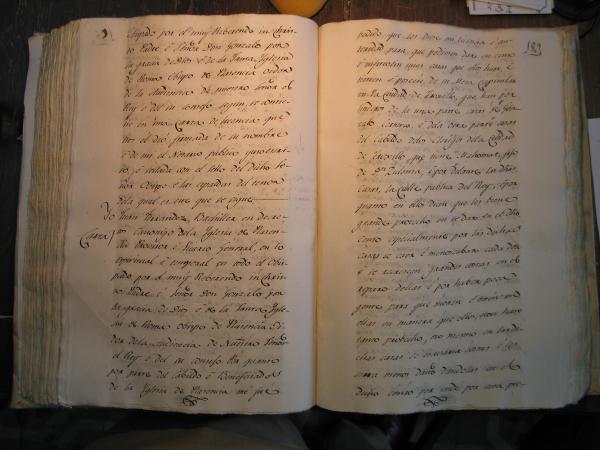 obispado por el muy Reberendo in Chris-
to Padre é Señor Don Gonzalo por
la gracia de Dios é de la Santa Iglesia
de Roma Obispo de Plasencia Oidor
de la Audiencia de nuestro Señor el
Rey é del su consejo según se contie-
ne en una Carta de licencia que
nos el dió firmada de su nombre
é de mi el Notario publico
é sellada con el sello del dicho Se-
ñor Obispo é las espaldas del tenor
dela qual es este que se sigue
Yo Juan Bachiller en Decre-
Carta
tos Canonigo dela Iglesia de Plasen-
cia Provisor é Vicario General, en lo
espiritual é temporal en todo el Obis-
pado por el muy Reberendo in Chris-
to Padre é Señor Don Gonzalo por
la gracia de Dios é de la Santa Igle-
sia de Roma obispo de Plasencia Oi-
dor dela Audiencia de Nuestro Señor
el Rey é del su consejo Por quanto
por parte del Cabildo é Beneficiados
de la Iglesia de Plasencia me fué
183
pedido, que les diese mi licencia é au-
toridad para que pudiesen dar en censo
é unas casas que ellos han, é
tienen é poseen de su Mesa Capitular
en la Ciudad de Truxillo, que han por
linderos de la una parte casas de Gon-
zalo é dela otra parte casas
del Cabildo delos Clerigos dela Ciudad
de Truxillo que tiene Mahomat, fijo
de é por delante las dichas
Casas, la calle publica del Rey: é por
quanto en ello dicen que les viene
grande probecho en se dar en el dho
Censo especialmente por las dichas
casas se caer é menoscabar cada dia
é se recrecen grandes costas en el
reparo dellas é por haber poca
gente para que moren é
ellas en manera que ellos non han
tanto probecho, no menos en las di-
chas casas se
menor daño dandolas en el
dicho Censo por ende por esta pre-